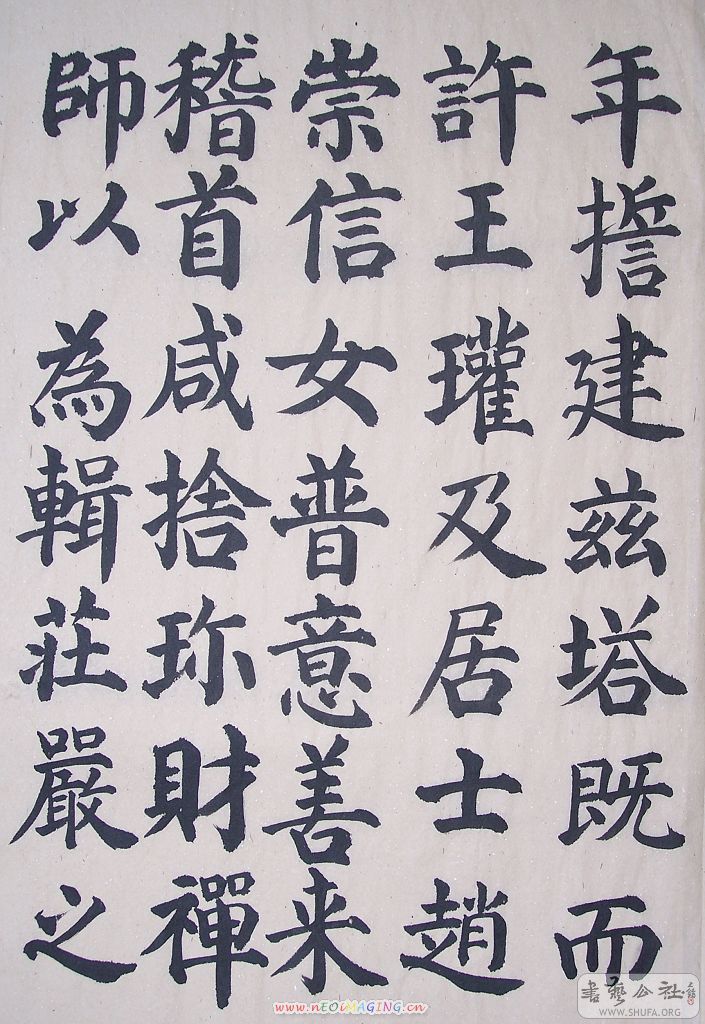 年誓建兹塔既而
許王瓘及居士趙
崇信女普意善来
稽首咸捨珎財禪
師以為輯莊嚴之
書藝公社
WWW.SHUFA.ORG
www.nEOiMAGING.cn